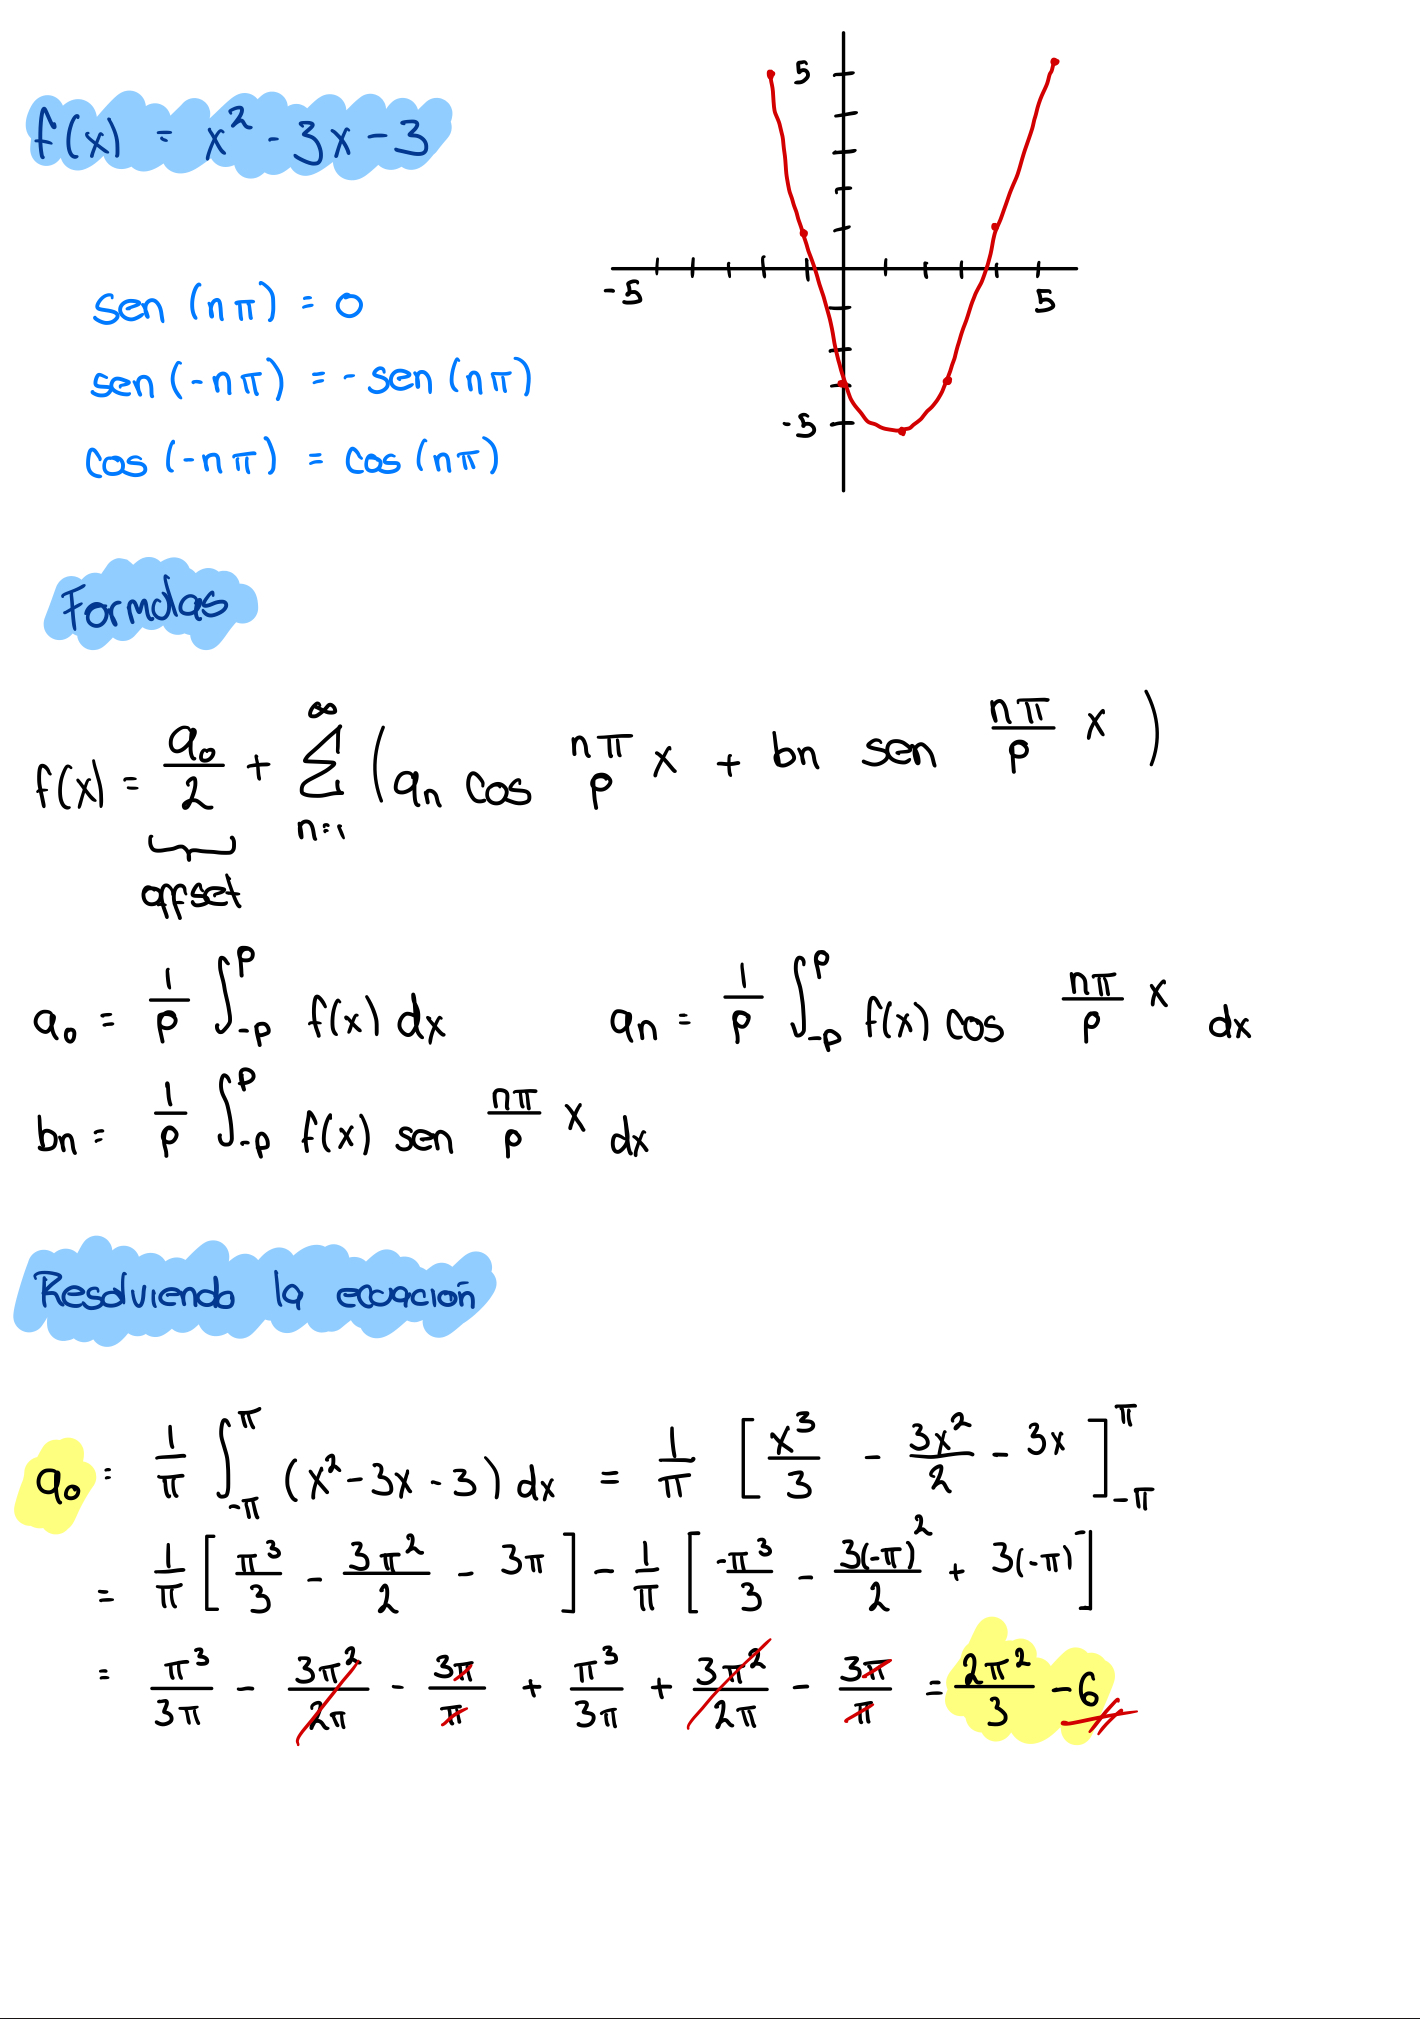 f(x) = x² - 3x - 3
5
-5
5
-5
sen (nπ) = 0
sen (-nπ) = - sen (nπ)
cos (-nπ) = cos (nπ)
Formulas
f(x) = a₀/2 + ∞ Σ n=1 (aₙ cos nπ/p x + bn sen nπ/p x)
offset
a₀ = 1/p ∫₋ₚᵖ f(x) dx aₙ = 1/p ∫₋ₚᵖ f(x) cos nπ/p x dx
bn = 1/p ∫₋ₚᵖ f(x) sen nπ/p x dx
Resolviendo la ecuación
a₀ = 1/π ∫_-π^π (x² - 3x - 3) dx = 1/π [x³/3 - 3x²/2 - 3x]_-π^π
= 1/π [π³/3 - 3π²/2 - 3π] - 1/π [-π³/3 - 3(-π)²/2 + 3(-π)]
= π³/3π - 3π²/2π - 3π/π + π³/3π + 3π²/2π - 3π/π = 2π²/3 - 6